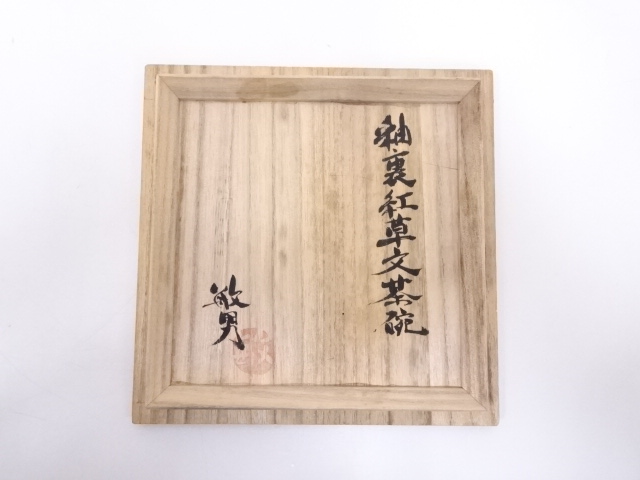 釉裏紅草文茶碗
敏男